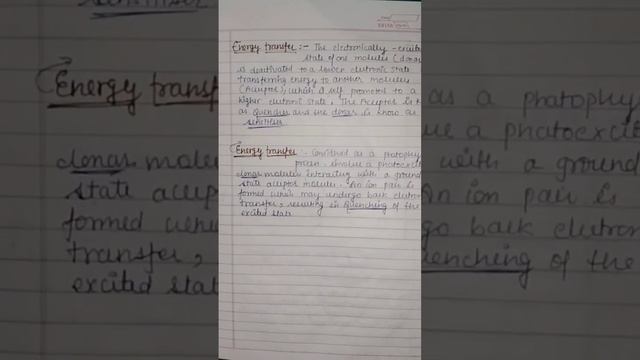 Energy transfer :- The electronically - excited
state of one molecules (donar
is deactivated to a lower electronic state
transferring energy to another molecules
(Acceptor), which it self promoted to a
higher electronic state, The Acceptor is k
as Quencher and the donar is know as
sensitiser
Energy transfer - Considered as a photophy
process, involve a photoexcit
donar molecules interacting with a ground
state acceptor molecules. An ion pair is
formed which may undergo back electron
transfer, resulting in Quenching of the
excited state